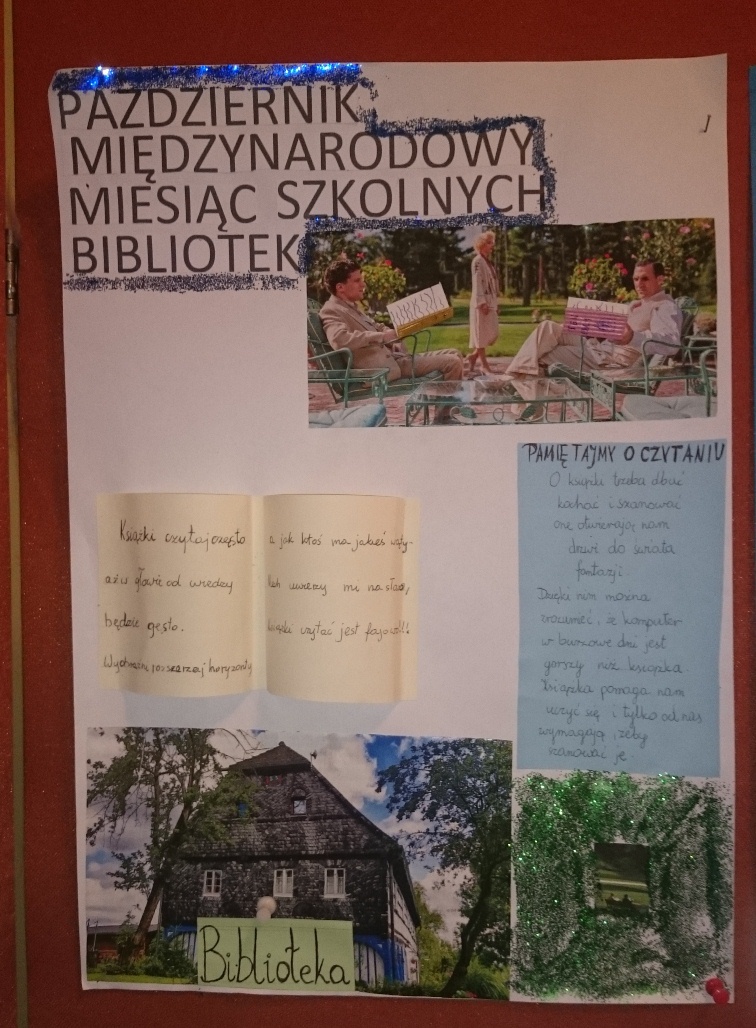 PAŹDZIERNIK
MIĘDZYNARODOWY
MIESIĄC SZKOLNYCH
BIBLIOTEK
PAMIĘTAJMY O CZYTANIU
O książki trzeba dbać
kochać i szanować
one otwierają nam
drzwi do świata
fantazji
Dzięki nim można
zrozumieć, że komputer
w burzowe dni jest
gorszy niż książka.
Książka pomaga nam
uczyć się i tylko od nas
wymagają, żeby
szanować je
Książki czytaj często
a żu głowie od wiedzy
będzie gęsto.
Wyobraźni rozszerzaj horyzonty
a jak ktoś ma jakieś wąty-
uwierzy mi na słowo,
książki czytać jest fajowo!!!
Biblioteka